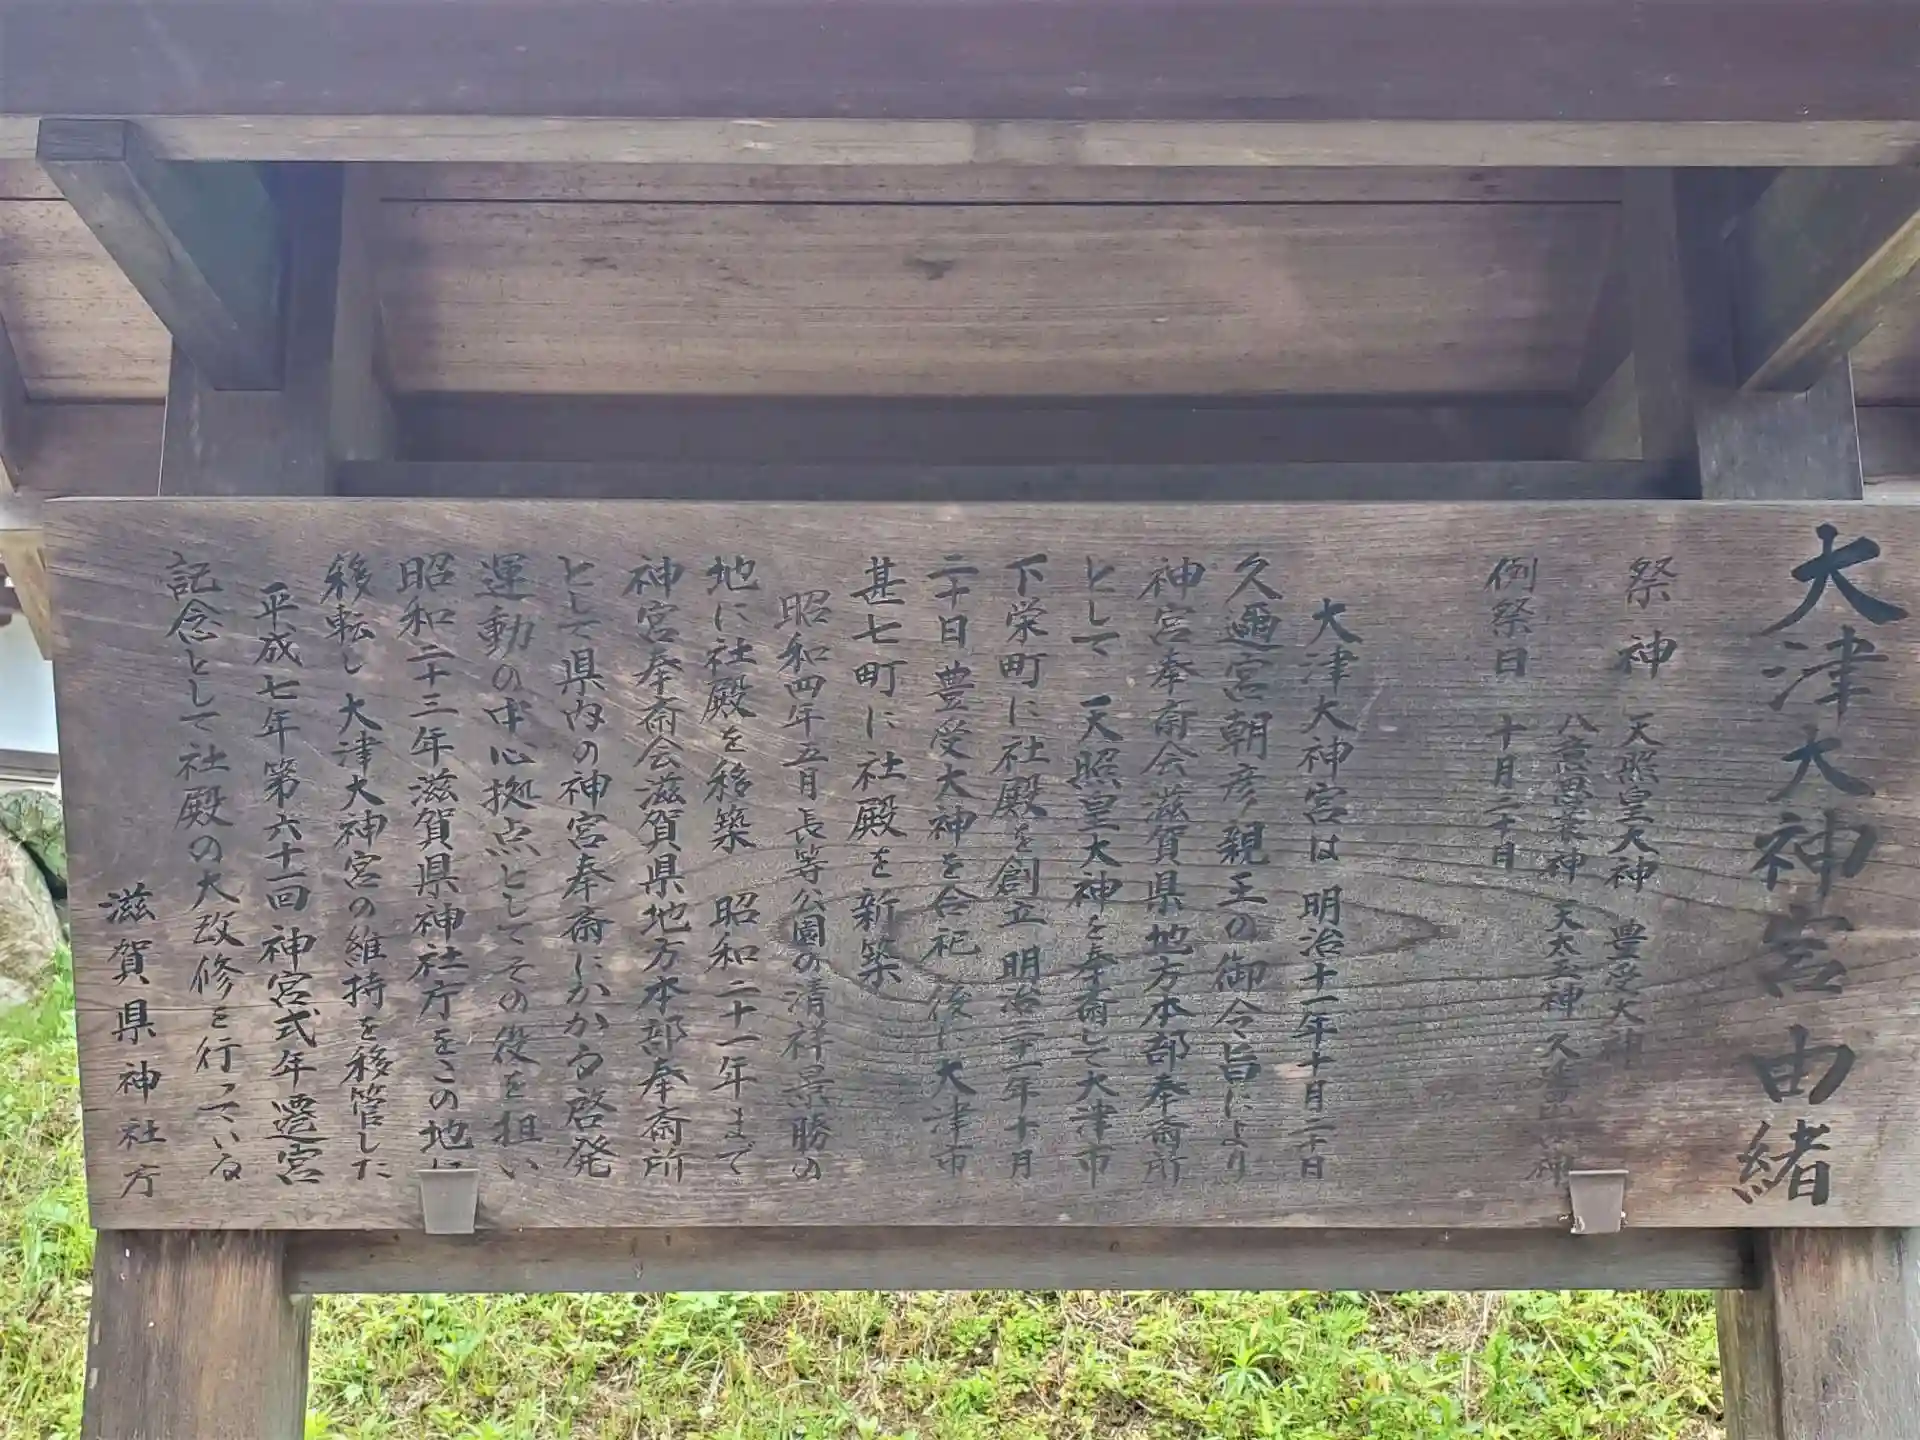 大津大神宮由緒
祭神 天照皇大神 豊受大神
八意思兼神 天太玉神 久
例祭日 十月二十日
大津大神宮は 明治十一年十月二十日
久邇宮朝彦親王の御令旨により
神宮奉斎会滋賀県地方本部奉斎所
として 天照皇大神を奉斎して大津市
下栄町に社殿を創立 明治二十一年十月
二十日豊受大神を合祀 後に大津市
甚七町に社殿を新築
昭和四年五月長等公園の清祥景勝の
地に社殿を移築 昭和二十一年まで
神宮奉斎会滋賀県地方本部奉斎所
として県内の神宮奉斎にかかる啓発
運動の中心拠点としてその役を担い
昭和二十三年滋賀県神社庁をこの地に
移転し大津大神宮の維持を移管した
平成七年第六十一回神宮式年遷宮
記念として社殿の大改修を行っている
滋賀県神社庁